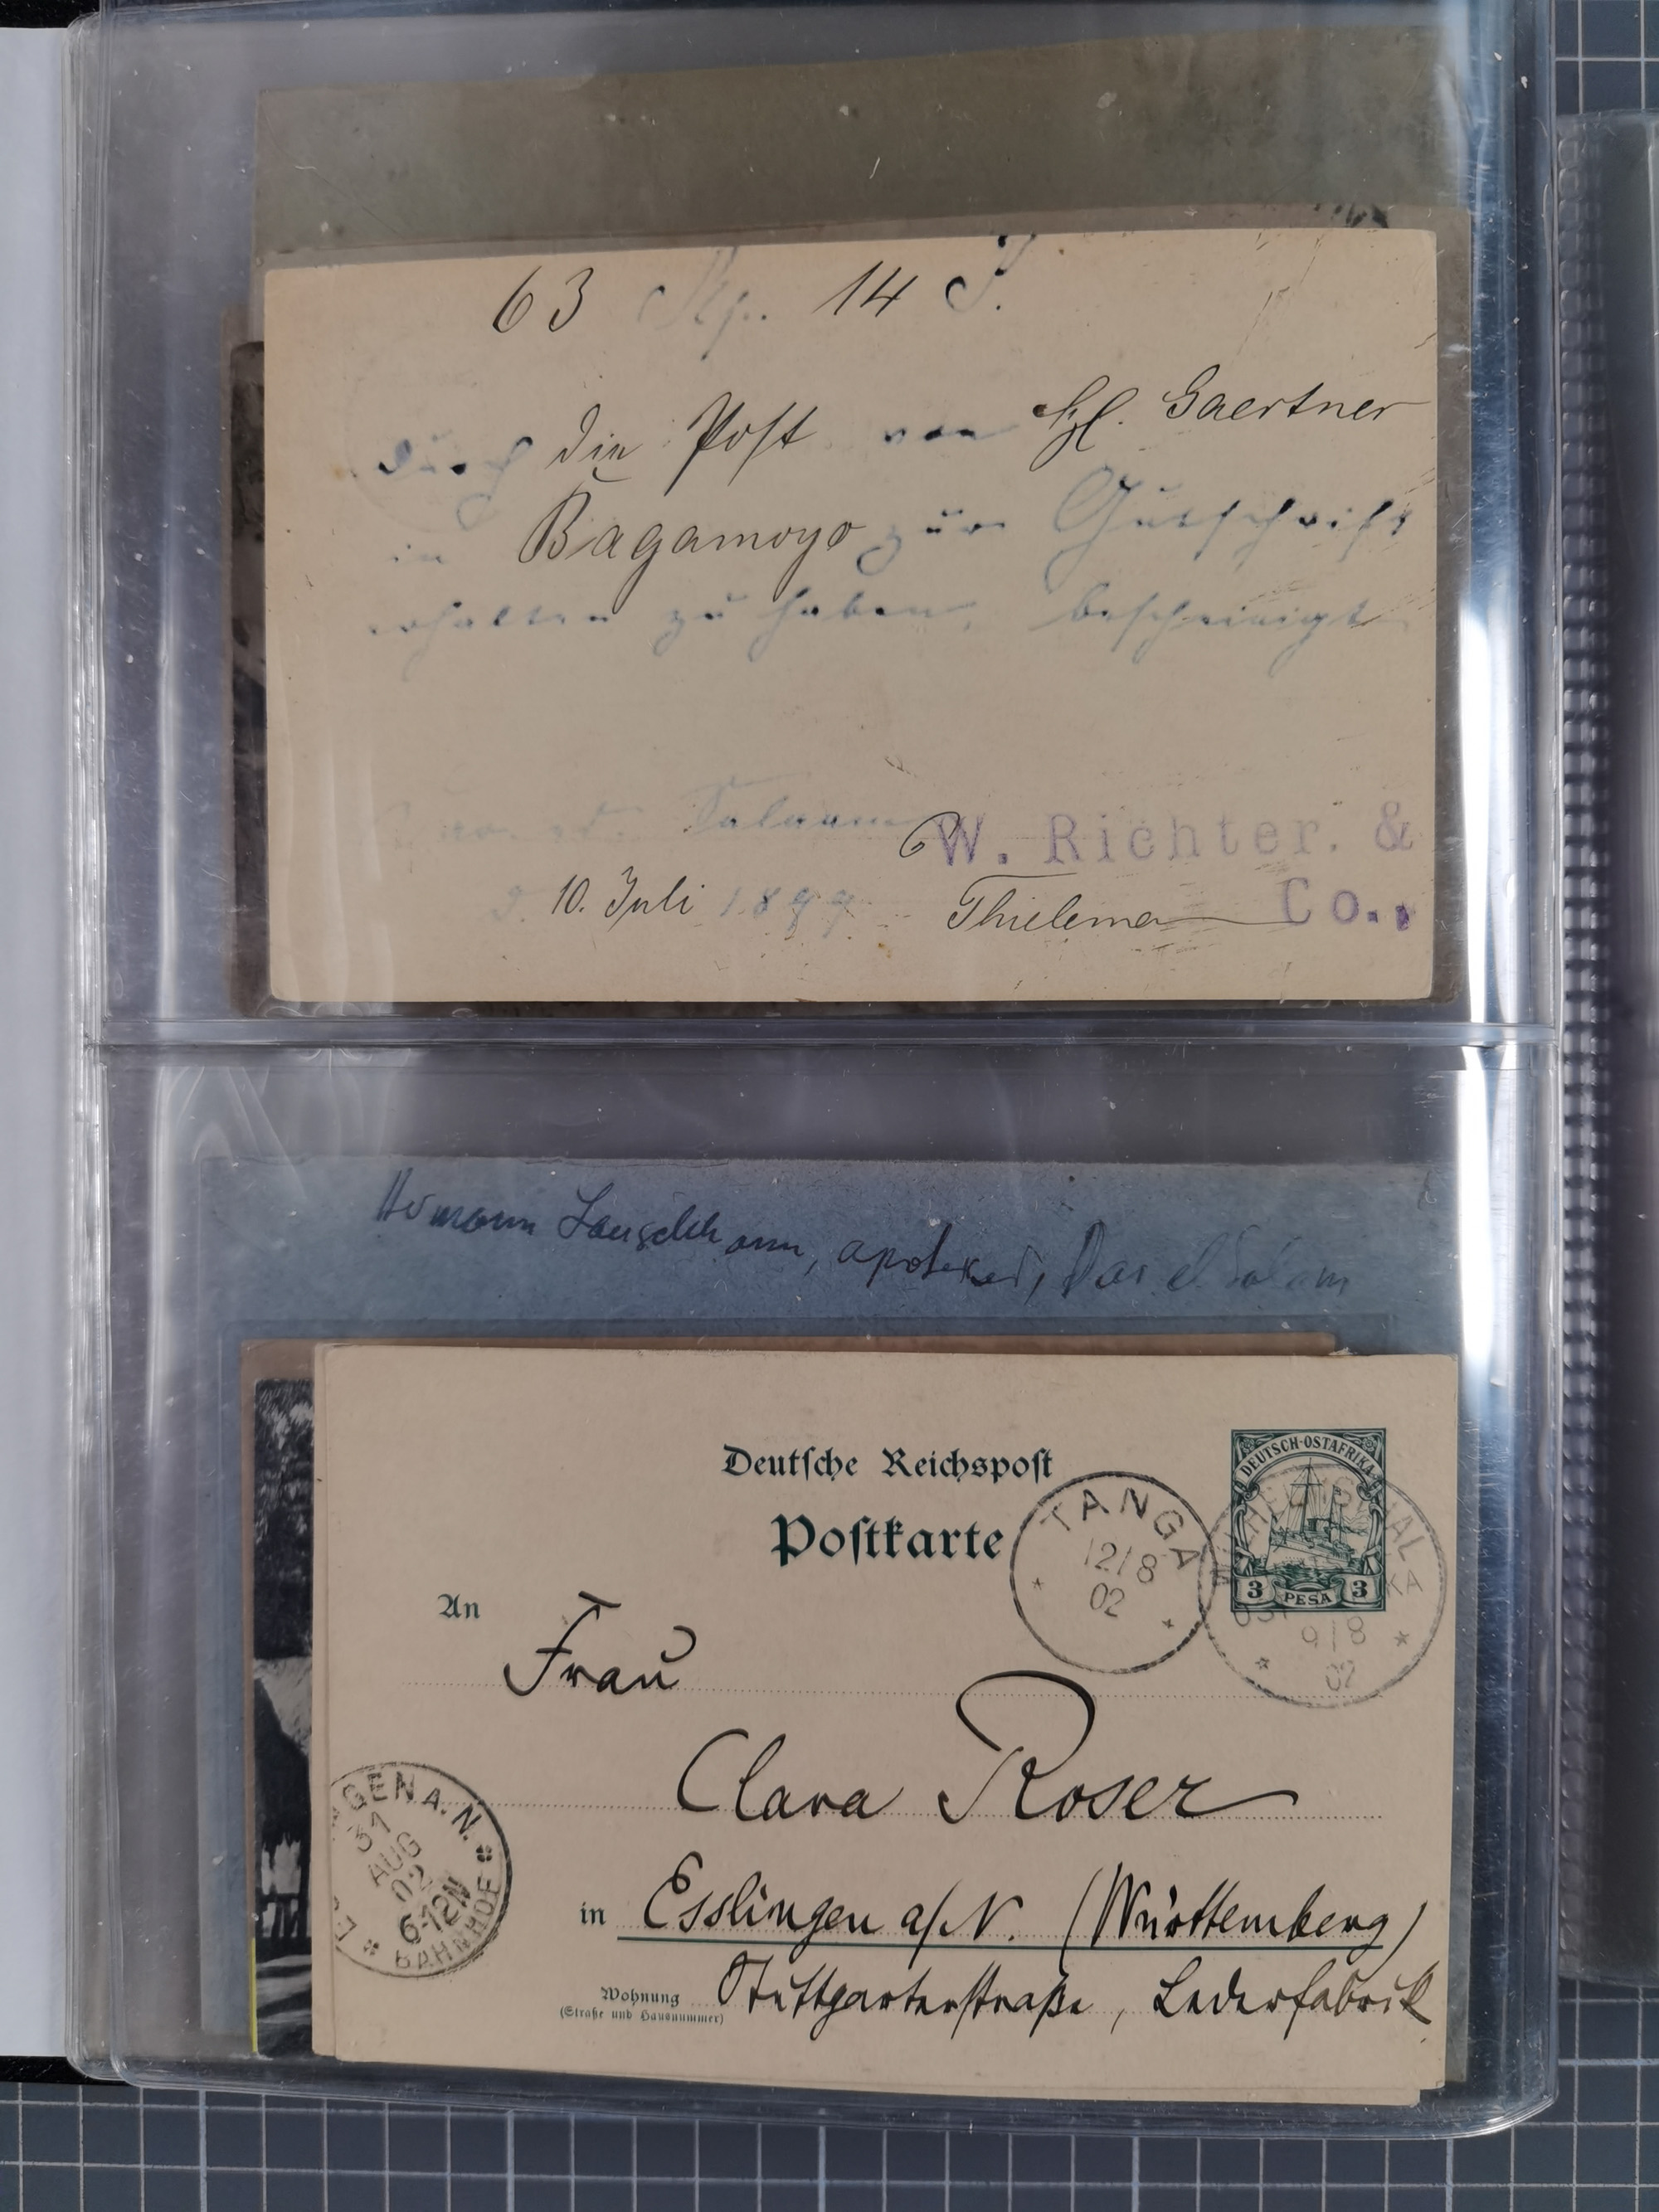 63 Rp. 14 P.
durch die Post von H. Gaertner
in Bagamoyo zur Gutschrift
erhalten zu haben, bescheinigt
Salaam
W. Richter. &
d. 10. Juli 1899
Co.,
Hermann apoteker, Dar el Salam
Deutsche Reichspost
Postkarte
DEUTSCH-OSTAFRIKA
3 PESA 3
TANGA
12/8
02
9/8
02
An
Frau
Clara Roser
GEN A. N.
31
AUG
02
6-12N
BAHNHOF
in Esslingen a/N. (Württemberg)
Wohnung Stuttgarterstraße, Lederfabrik
(Straße und Hausnummer)